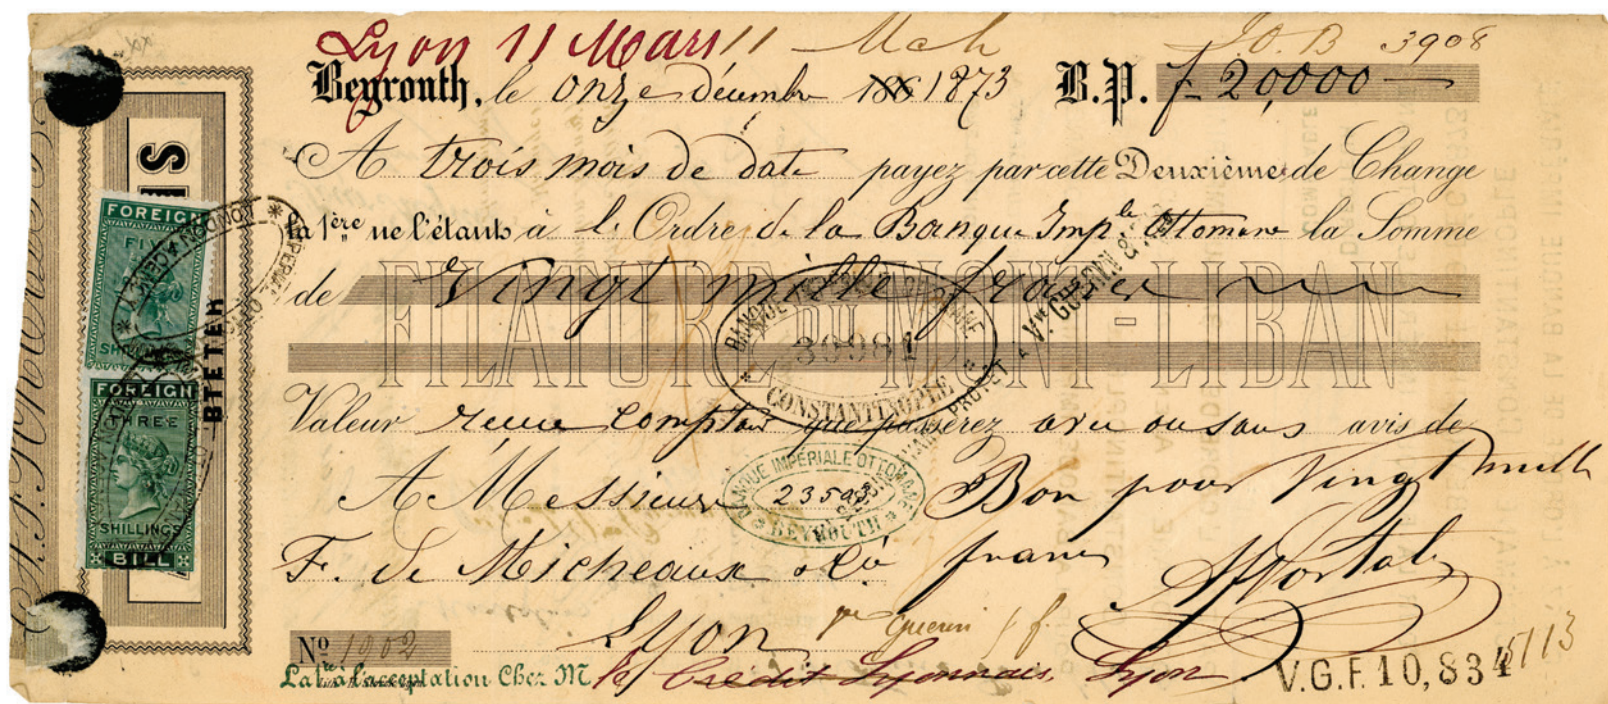 Lyon 11 Mars 11 Mch
3908
Beyrouth, le onze décembre 186 1873 B.P. f 20,000
A trois mois de date payez par cette Deuxième de Change
la 1ère ne l'étant à l'Ordre de la Banque Imp.le Ottomane la Somme
de Vingt mille francs
FILATURE DU MONT-LIBAN
BANQUE IMPERIALE OTTOMANE
30981
CONSTANTINOPLE
Vve GUERIN &
PROTET
Valeur reçue comptant que passerez avec ou sans avis de
BANQUE IMPÉRIALE OTTOMANE
BEYROUTH
A Messieurs
Bon pour Vingt mille
F. de Micheaux & Cie francs
Lyon
APortalis
guerin
No 1902
La 1re à l'acceptation Chez M le Crédit Lyonnais, Lyon
V.G.F. 10,834
5113
FOREIGN
FIVE
SHILLINGS
FOREIGN
THREE
SHILLINGS
BILL
BTETER
LONDON